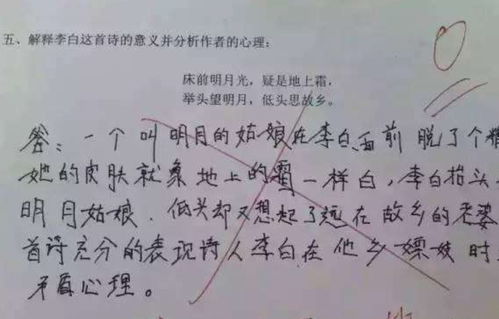 五、解释李白这首诗的意义并分析作者的心理：
床前明月光，疑是地上霜，
举头望明月，低头思故乡。
答：一个叫明月的姑娘在李白面前脱了个
她的皮肤就象地上的霜一样白，李白抬头
明月姑娘．低头却又想起了远在故乡的老婆
首诗充分的表现诗人李白在他乡嫖妓时
矛盾心理。